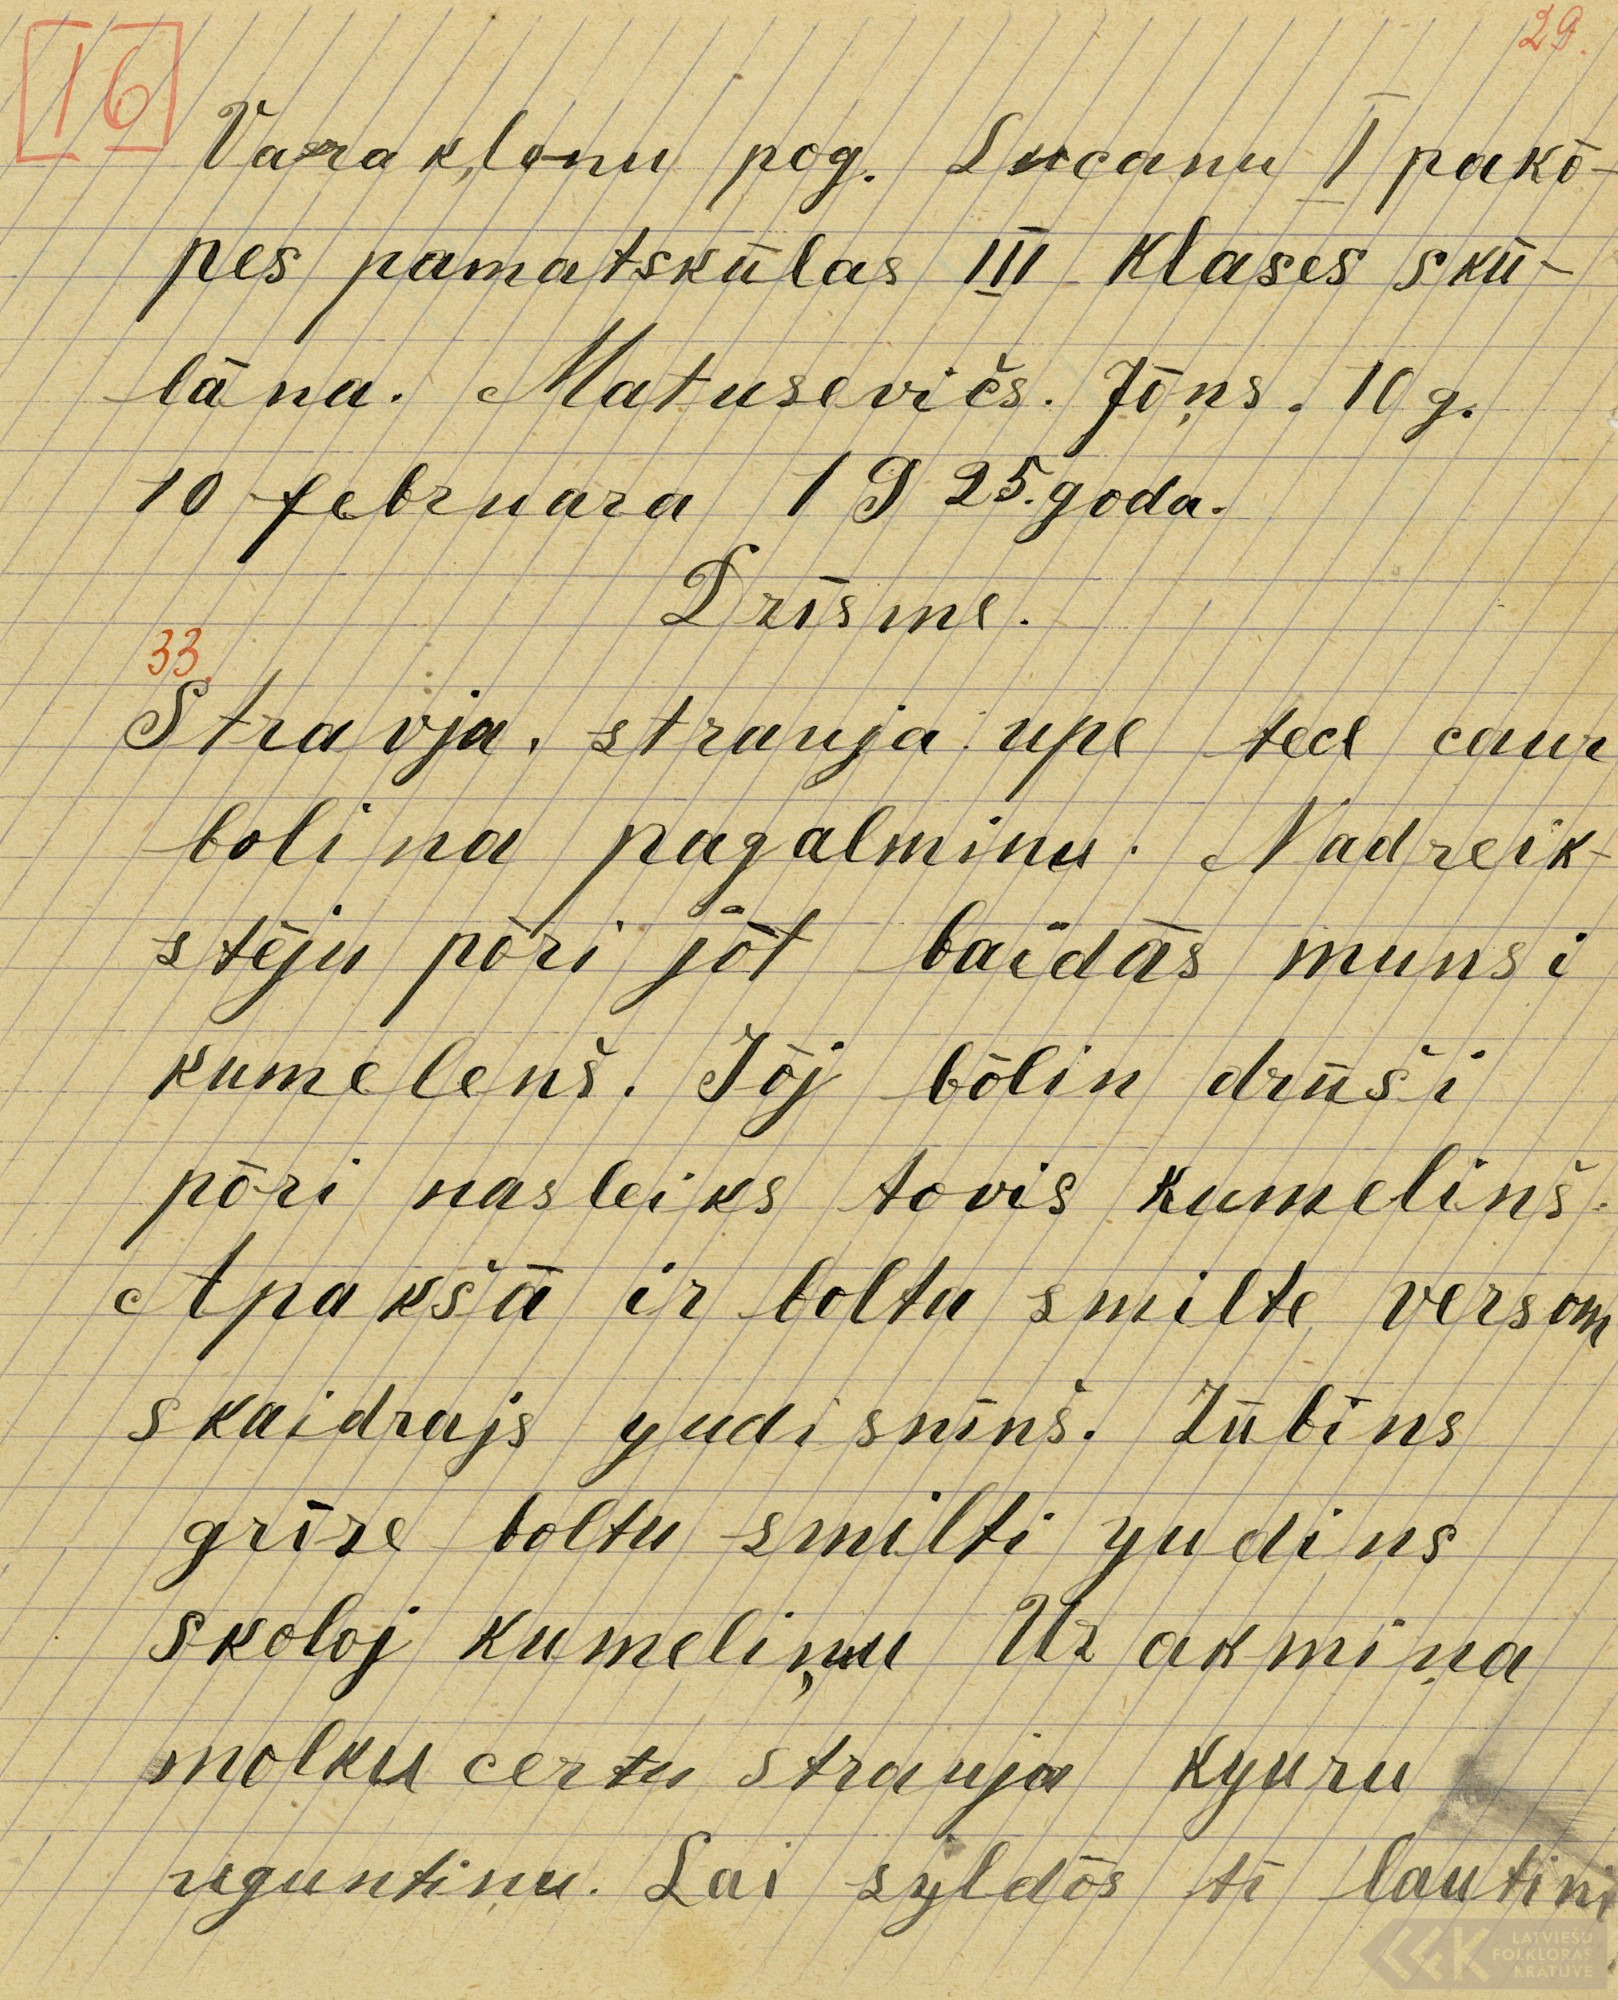 16
29.
Varakļonu pog. Lucanu I pakō-
pes pamatskūlas III klases skū-
lāna. Matusevičs. Jōņs. 10 g.
10 februara 1925. goda.
Drīsme.
33.
Stravja, strauja upe tecl caur
bolina pagalminu. Nadreik-
stēju pōri jōt baidās munsi
kumelenš. Jōj bōlin drūši
pōri nasleiks tovis kumelinš.
Apakšā ir boltu smilte versom
skaidrajs yudisnīnš. Zūbīns
grīze boltu smilti yudins
skoloj kumeliņu Uz akmiņa
molku certu strauja kyuru
uguntiņu. Lai syldōs tī lautini
LATVIEŠU
FOLKLORAS
KRĀTUVE